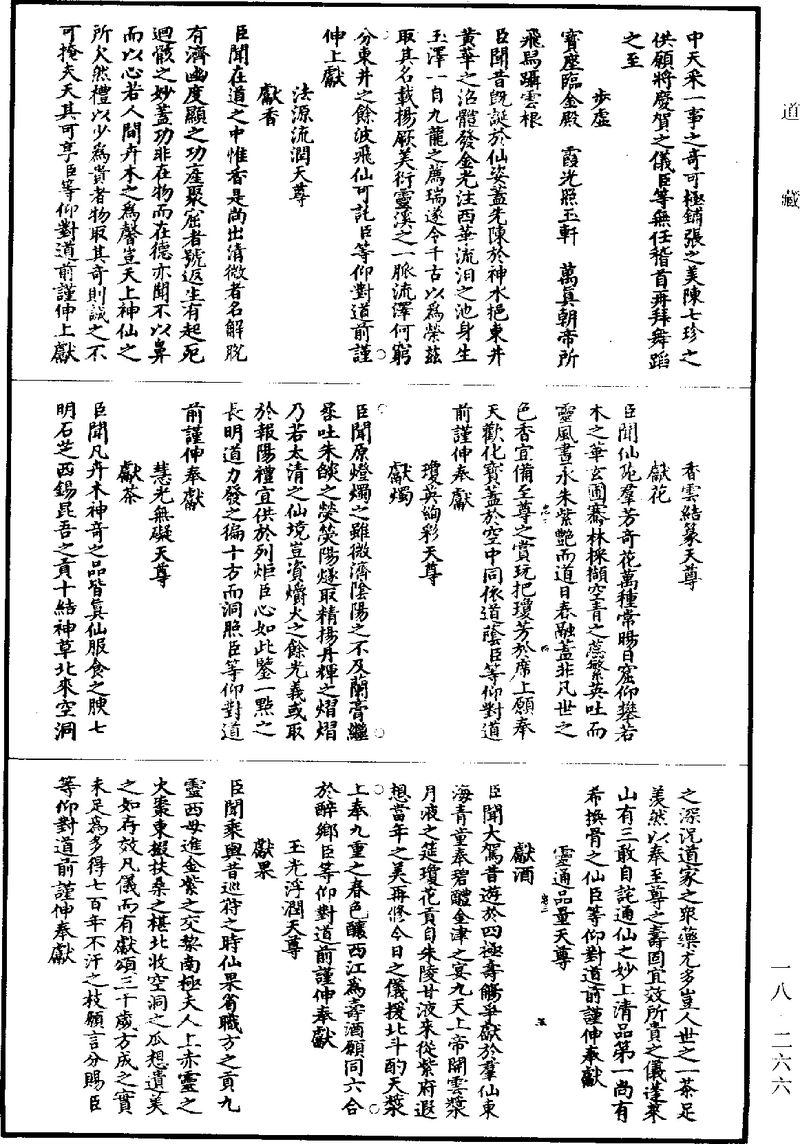 道藏
中天采一事之奇可極鋪張之美陳七珍之
供願將慶賀之儀臣等無任稽首再拜舞蹈
之至
步虛
寶座臨金殿　霞光照玉軒　萬真朝帝所
飛舄躡雲根
臣聞昔既誕於仙姿蓋先陳於神水挹東井
黃華之治體發金光注西華流汨之池身生
玉澤一自九龍之薦瑞遂令千古以為榮茲
取其名載揚厥美衍靈溪之一脈流澤何窮
分東井之餘波飛仙可託臣等仰對道前謹
伸上獻
法源流潤天尊
獻香
臣聞在道之中惟香是尚出清微者名解脫
有濟幽度顯之功產聚窟者號返生有起死
迴骸之妙蓋功非在物而在德亦聞不以鼻
而以心若人間卉木之為馨豈天上神仙之
所久然禮以少為貴者物取其奇則誠之不
可掩夫天其可享臣等仰對道前謹伸上獻
香雲結篆天尊
獻花
臣聞仙苑羣芳奇花萬種常暘日窟仰攀若
木之華玄圃騫林採擷空青之蘂繁英吐而
靈風晝永朱紫艷而道日春融蓋非凡世之
色香宜備至尊之賞玩把瓊芳於席上願奉
天歡化寶蓋於空中同依道蔭臣等仰對道
前謹伸奉獻
瓊英絢彩天尊
獻燭
臣聞原燈燭之雖微濟陰陽之不及蘭膏繼
晷吐朱燄之熒熒陽燧取精揚丹輝之熠熠
乃若太清之仙境豈資爝火之餘光義或取
於報陽禮宜供於列炬臣心如此鑒一點之
長明道力發之徧十方而洞照臣等仰對道
前謹伸奉獻
慧光無礙天尊
獻茶
臣聞凡卉木神奇之品皆真仙服食之腴七
明石芝西錫昆吾之貢十結神草北來空洞
之深況道家之眾藥尤多豈人世之一茶足
羨然以奉至尊之壽固宜效所貴之儀蓬萊
山有三敢自詫通仙之妙上清品第一尚有
希換骨之仙臣等仰對道前謹伸奉獻
靈通品量天尊
獻酒
臣聞大駕昔遊於四極壽觴爭獻於羣仙東
海青童奉碧醴金津之宴九天上帝開雲漿
月液之筵瓊花貢自朱陵甘液來從紫府遐
想當年之美再修今日之儀援北斗酌天漿
上奉九重之春色釀西江為壽酒願同六合
於醉鄉臣等仰對道前謹伸奉獻
玉光浮潤天尊
獻果
臣聞乘輿昔巡狩之時仙果省職方之貢九
靈西母進金紫之交梨南極夫人上赤靈之
火棗東掇扶桑之椹北收空洞之瓜想遺美
之如存效凡儀而有獻頌三千歲方成之實
未足為多得七百年不汗之枝願言分賜臣
等仰對道前謹伸奉獻
一八·二六六